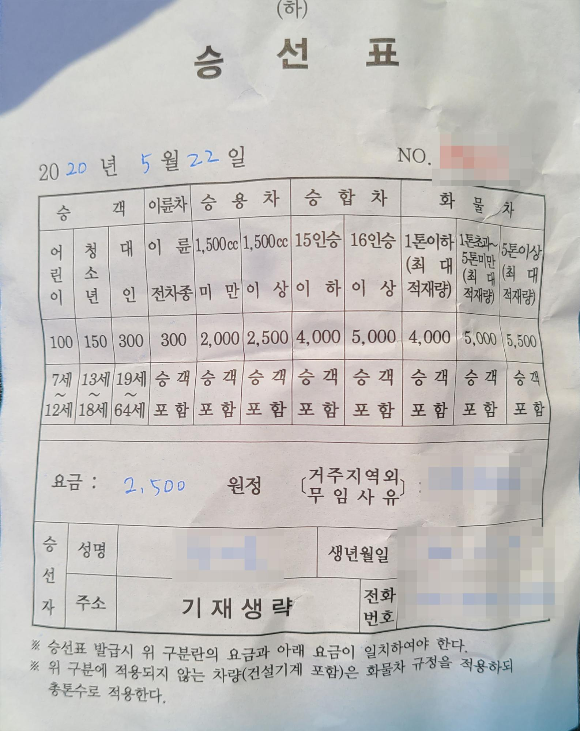 (하)
승 선 표
2020년 5월 22일 NO.
승 객 이륜차 승용차 승합차 화물차
어린이 청소년 대인 이륜전차종 1,500cc미만 1,500cc이상 15인승이하 16인승이상 1톤이하(최대적재량) 1톤초과~5톤미만(최대적재량) 5톤이상(최대적재량)
100 150 300 300 2,000 2,500 4,000 5,000 4,000 5,000 5,500
7세~12세 13세~18세 19세~64세 승객포함 승객포함 승객포함 승객포함 승객포함 승객포함 승객포함 승객포함
요금 : 2,500 원정 (거주지역외 무임사유) :
승선자 성명 생년월일
주소 기재생략 전화번호
※ 승선표 발급시 위 구분란의 요금과 아래 요금이 일치하여야 한다.
※ 위 구분에 적용되지 않는 차량(건설기계 포함)은 화물차 규정을 적용하되
총톤수로 적용한다.